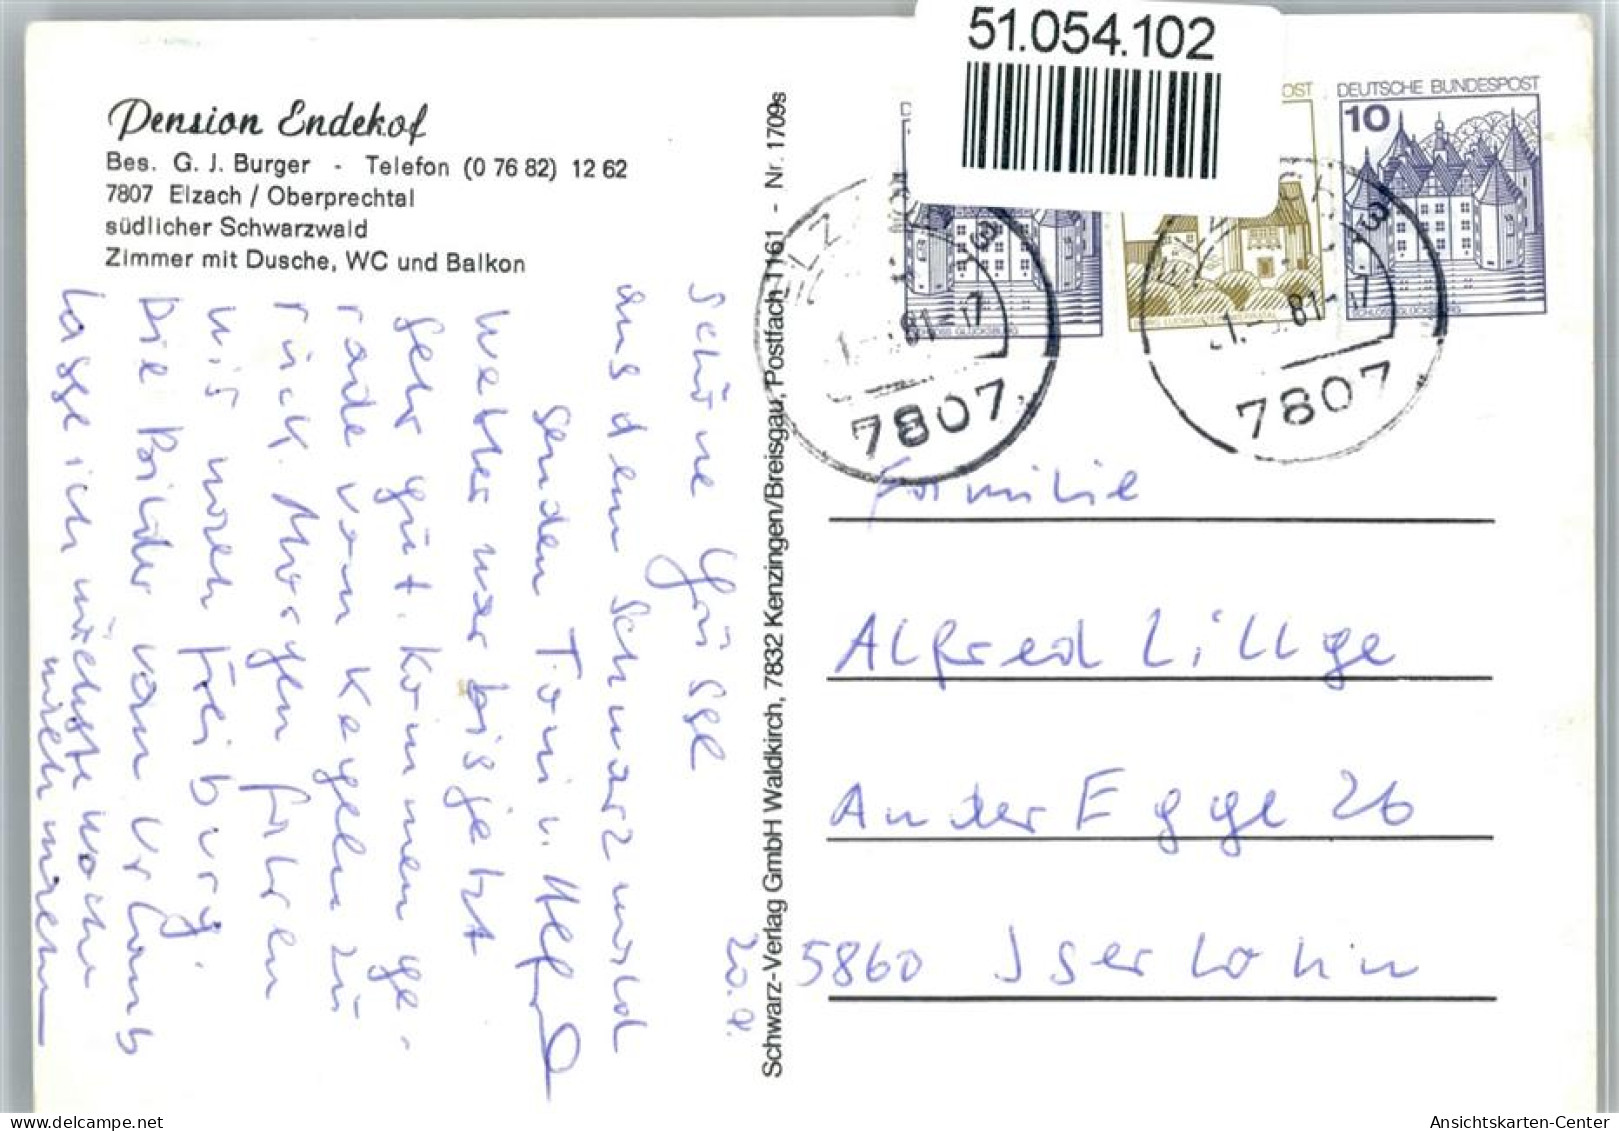 51.054.102
Pension Endehof
Bes. G. J. Burger - Telefon (0 76 82) 12 62
7807 Elzach / Oberprechtal
südlicher Schwarzwald
Zimmer mit Dusche, WC und Balkon
20.9.
Schöne Grüsse
aus dem Schwarzwald
senden Toni u.
Wetter war bisjetzt
sehr gut. Kommen ge-
rade vom Kegeln zu
rück. Morgen fahren
wir nach Freiburg.
Die Bilder vom Urlaub
lasse ich nächste Woche
Schwarz-Verlag GmbH Waldkirch, 7832 Kenzingen/Breisgau, Postfach 1161 - Nr. 1709s
DEUTSCHE BUNDESPOST
10
SCHLOSS GLÜCKSBURG
81-17
7807
81-17
7807
Familie
Alfred Lillge
An der Egge 26
5860 Iserlohn
Ansichtskarten-Center
www.delcampe.net